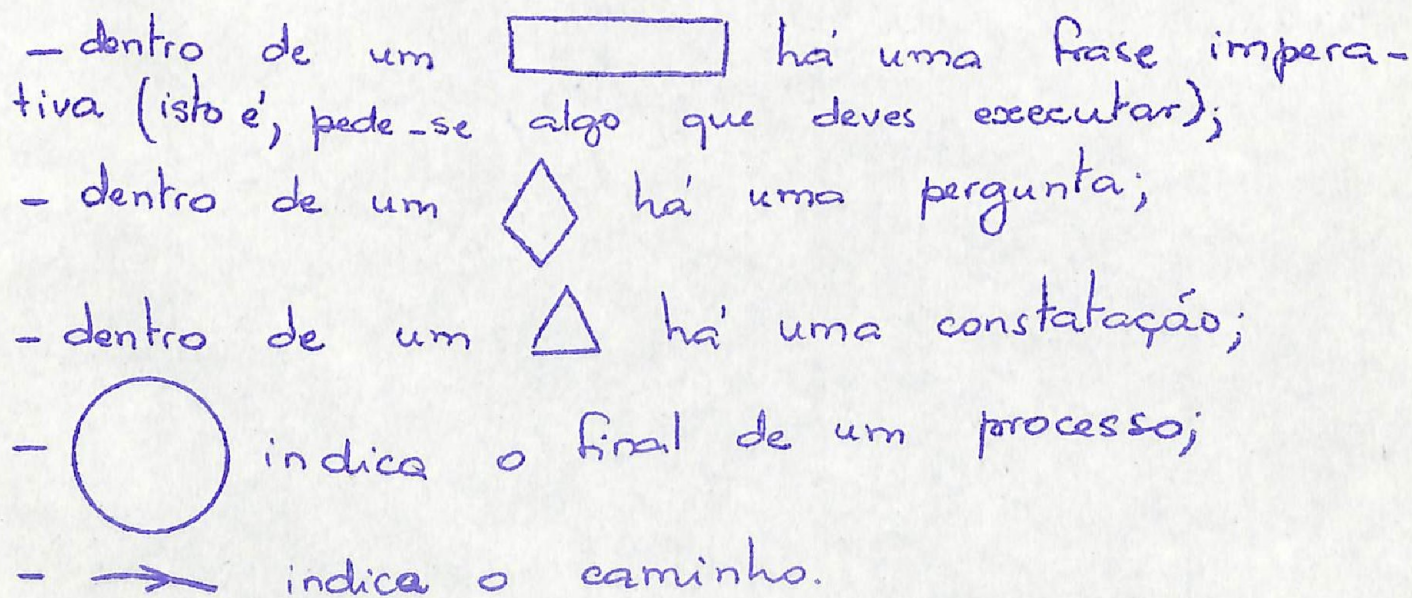 - dentro de um há uma frase impera-
tiva (isto é, pede-se algo que deves executar);
- dentro de um há uma pergunta;
- dentro de um há uma constatação;
- indica o final de um processo;
- indica o caminho.